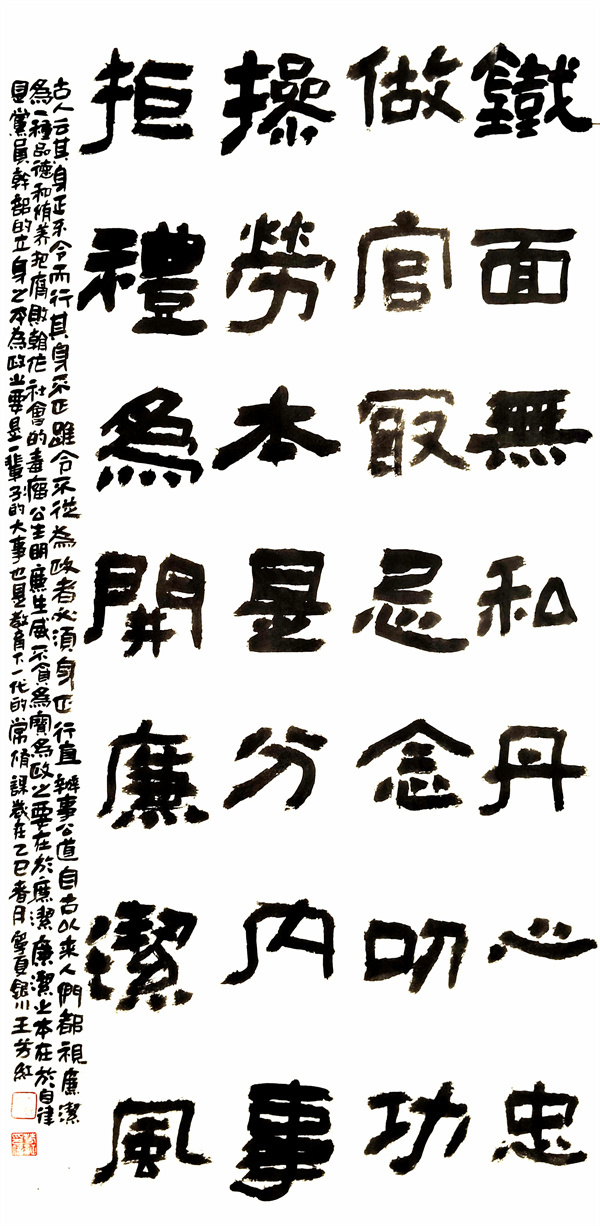 鐵面無私丹心忠
做官最忌念叨功
操勞本是分内事
拒禮為開廉潔風
古人云其身正不令而行其身不正雖令不從為政者必須身正行直辦事公道自古以来人們都視廉潔
為一種品德和脩養把腐敗作社會的毒瘤公生明廉生威不貪為寶為政之要在於廉潔廉潔之本在於自律
是黨員幹部的立身之本為政之要是一輩子的大事也是教育下一代的常脩課歲在乙巳春月銀川王芳紅